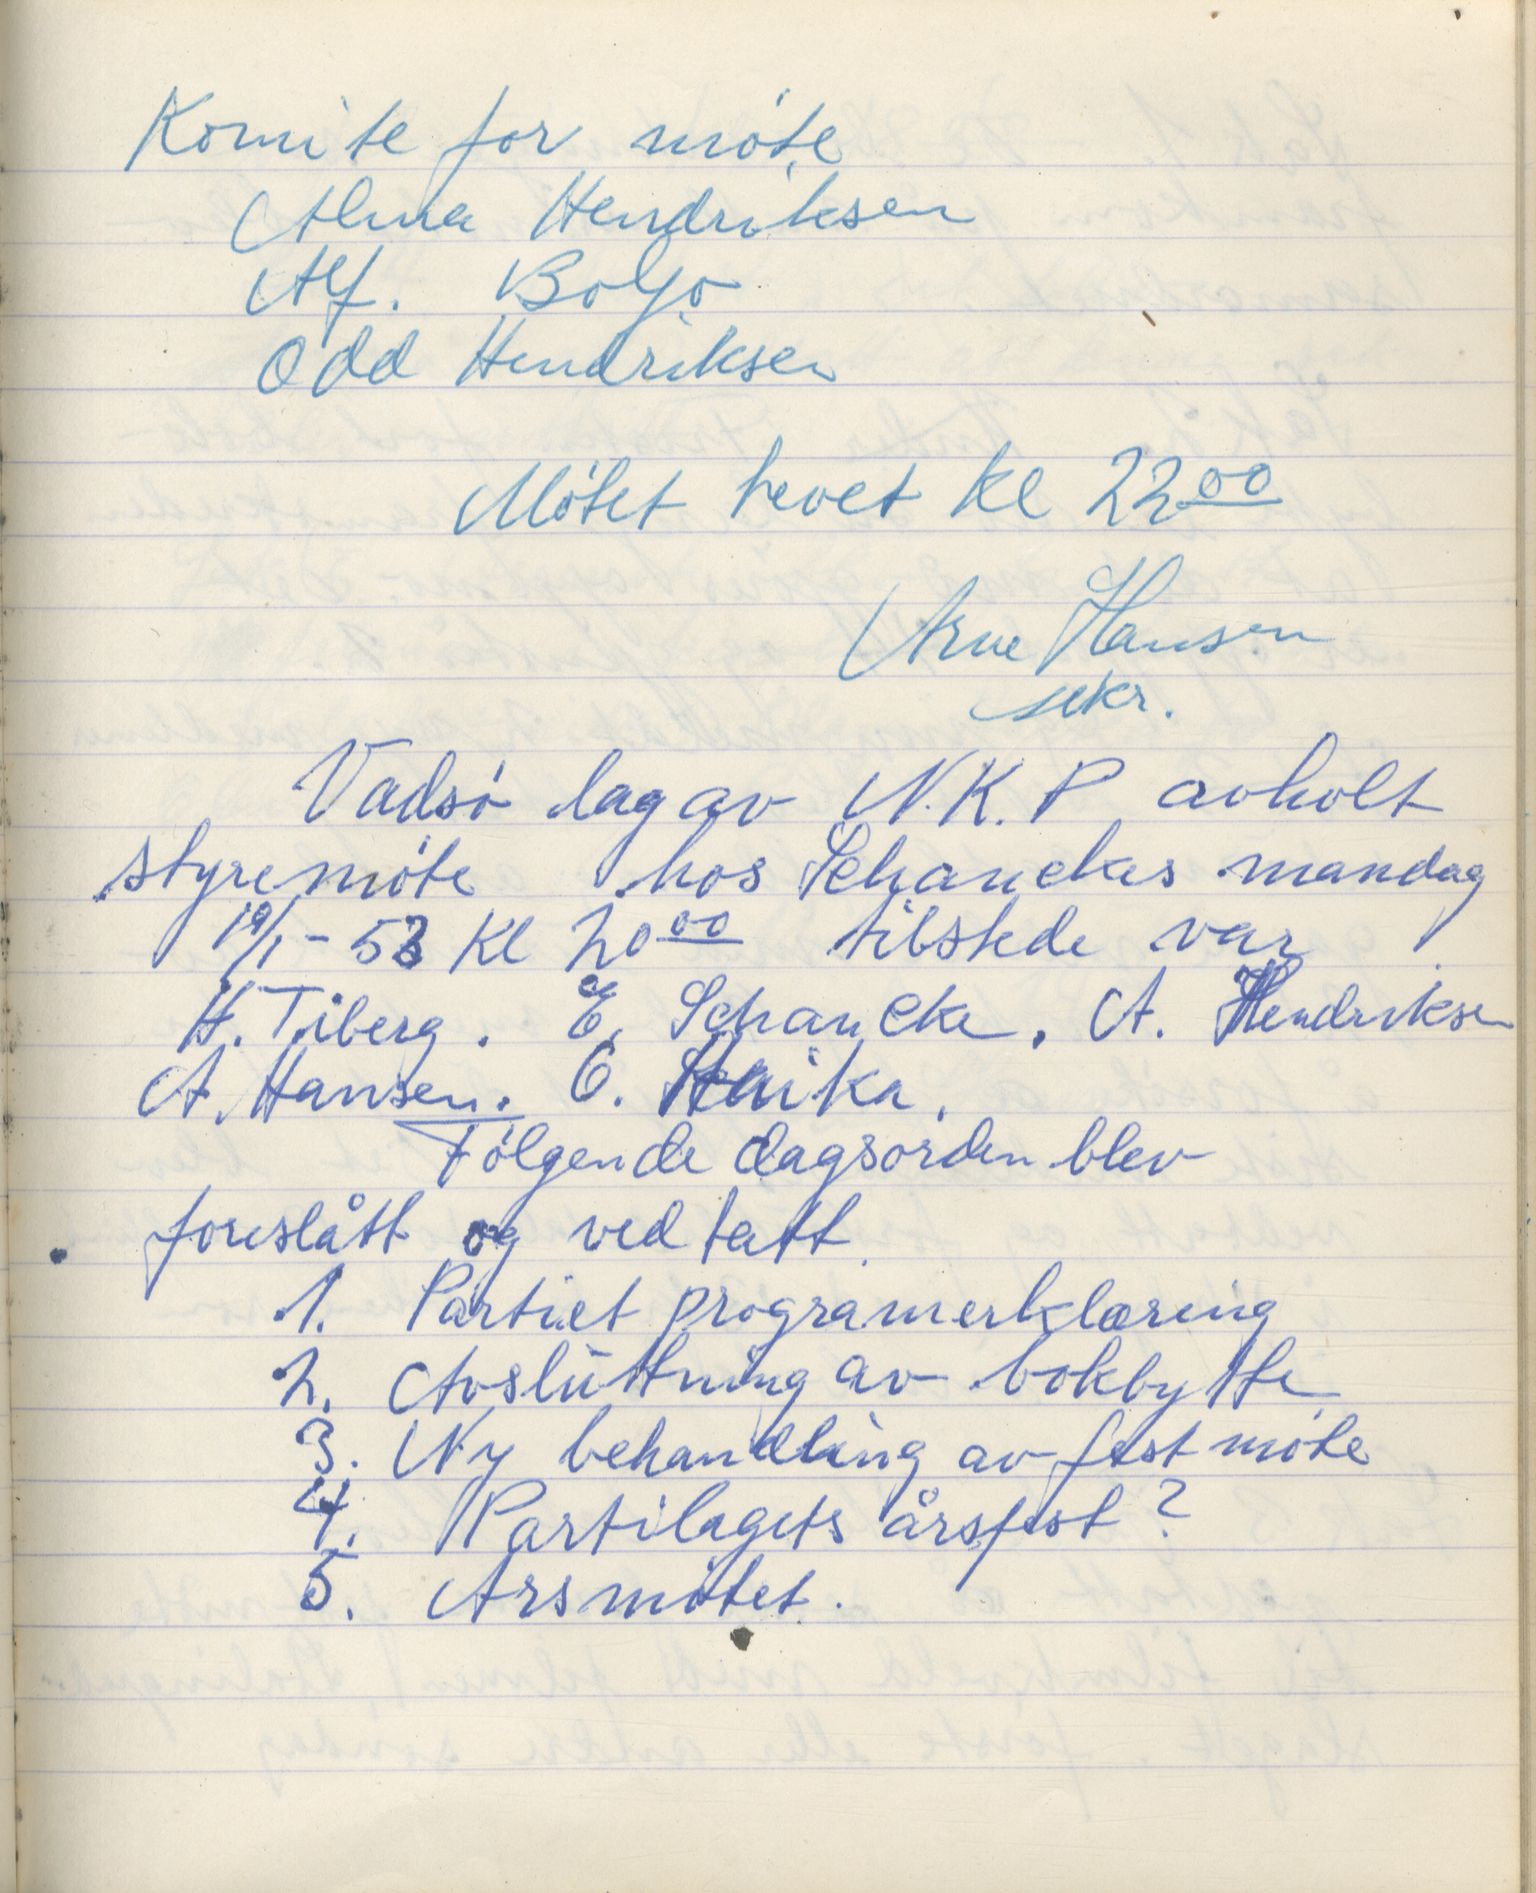 Komite for møte
Alma Hendriksen
Alf. Boljo
Odd Hendriksen
Møtet hevet kl 22⁰⁰
Arne Hansen
sekr.
Vadsø lag av N.K.P avholt
styremøte hos Schanckes mandag
19/1-53 Kl 20⁰⁰ tilstede var
H. Tiberg. E. Schancke. A. Hendriksen
A. Hansen. O.
Følgende dagsorden blev
foreslått og vedtatt.
1. Partiet programerklæring
2. Avsluttning av bokbytte
3. Ny behandling av festmøte
4. Partilagets årsfest?
5. Årsmøtet.